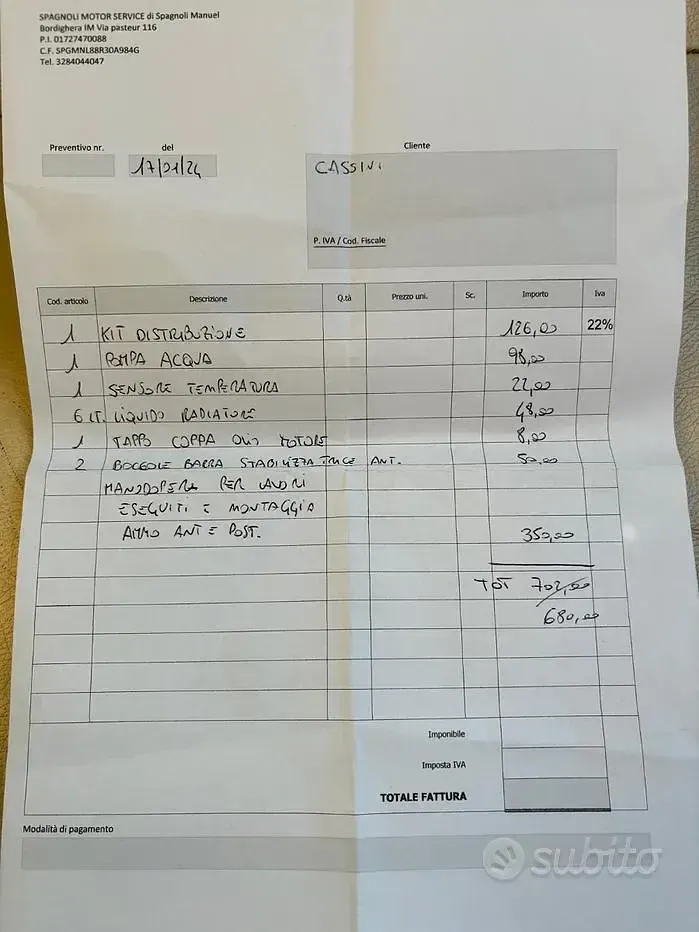 SPAGNOLI MOTOR SERVICE di Spagnoli Manuel
Bordighera IM Via pasteur 116
P.I. 01727470088
C.F. SPGMNL88R30A984G
Tel. 3284044047
Preventivo nr. del Cliente
17/01/24 CASSINI
P. IVA / Cod. Fiscale
Cod. articolo Descrizione Q.tà Prezzo uni. Sc. Importo Iva
1 KIT DISTRIBUZIONE 126,00 22%
1 POMPA ACQUA 98,00
1 SENSORE TEMPERATURA 22,00
6 LT. LIQUIDO RADIATORE 48,00
1 TAPPO COPPA OLIO MOTORE 8,00
2 BOCCOLE BARRA STABILIZZATRICE ANT. 50,00
MANODOPERA PER LAVORI
ESEGUITI E MONTAGGIO
AMMO ANT E POST. 350,00
TOT 702,00
680,00
Imponibile
Imposta IVA
TOTALE FATTURA
Modalità di pagamento
subito